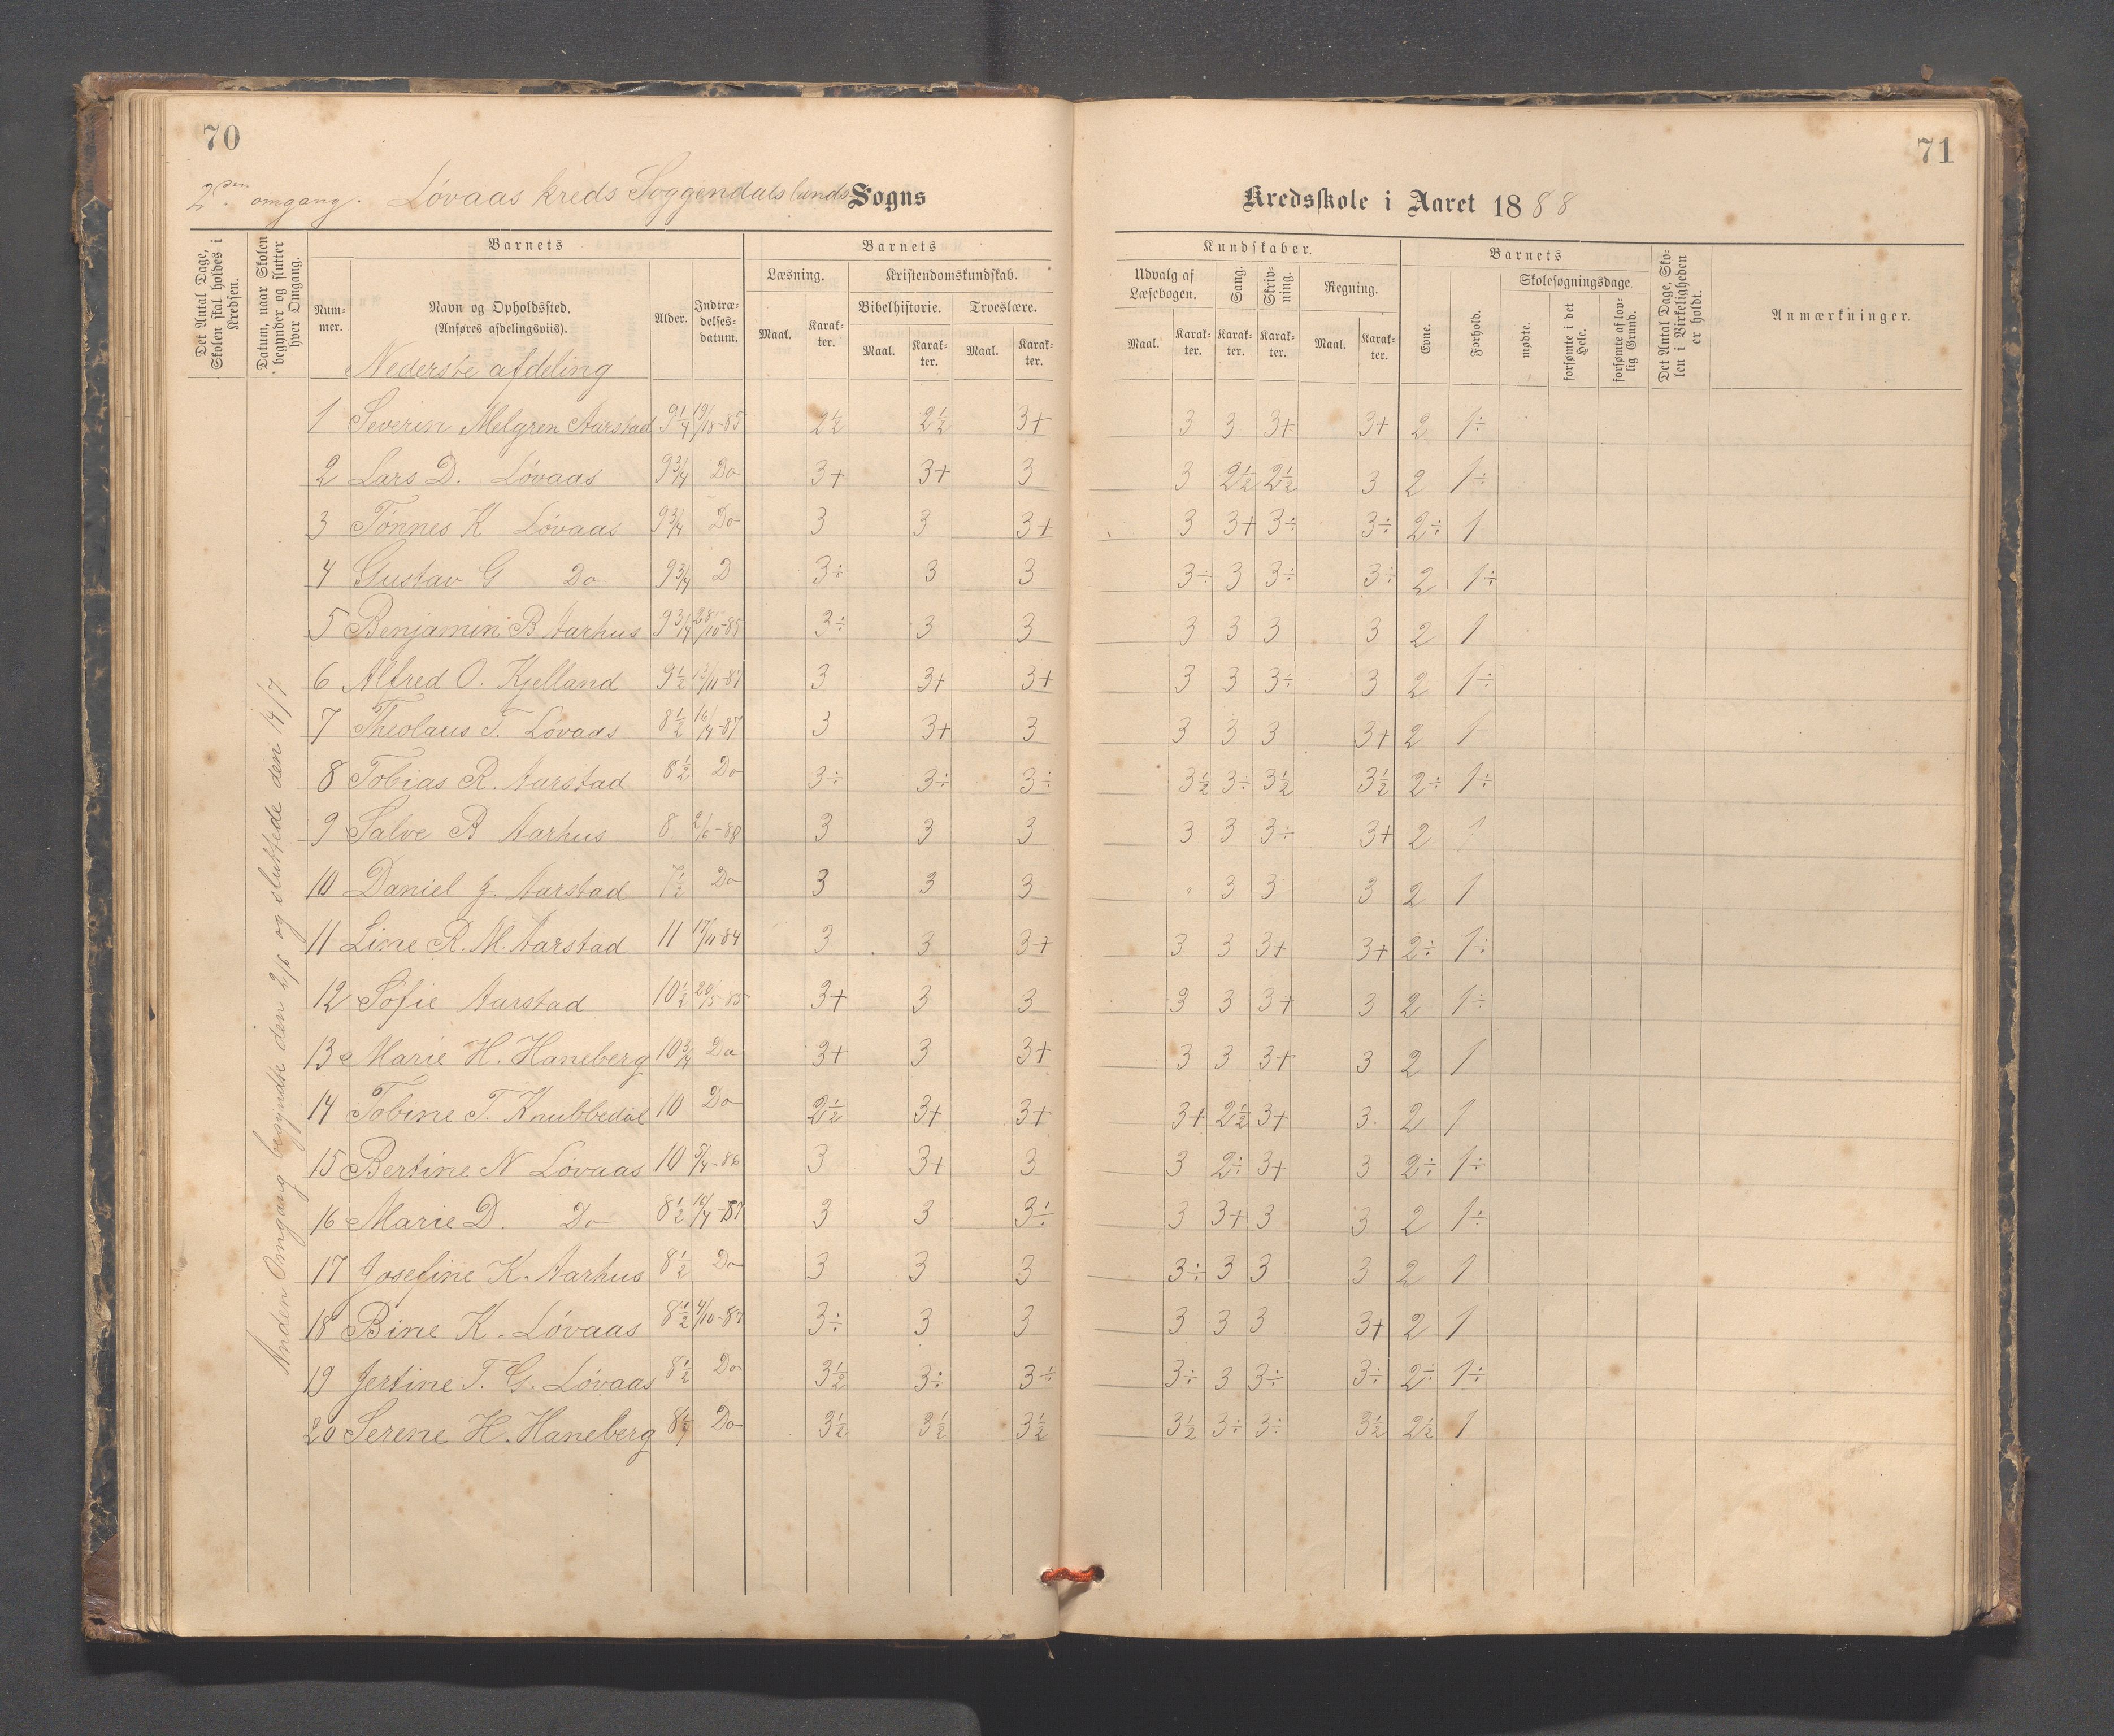 70
71
2den omgang. Løvaas kreds Soggendals lands Sogns
Kredsskole i Aaret 1888
Det Antal Dage, Skolen skal holdes i Kredsen.
Datum, naar Skolen begynder og slutter hver Omgang.
Barnets
Nummer.
Navn og Opholdssted.
(Anføres afdelingsviis).
Alder.
Indtrædelsesdatum.
Barnets
Læsning.
Kristendomskundskab.
Bibelhistorie.
Troeslære.
Maal. Karakter. Maal. Karakter. Maal. Karakter.
Kundskaber.
Udvalg af Læsebogen.
Sang.
Skrivning.
Regning.
Maal. Karakter. Karakter. Karakter. Maal. Karakter.
Barnets
Evne.
Forhold.
Skolesøgningsdage.
mødte.
forsømte i det Hele.
forsømte af lovlig Grund.
Det Antal Dage, Skolen i Virkeligheden er holdt.
Anmærkninger.
Nederste afdeling
Anden Omgang begyndte den 2/6 og sluttede den 14/7
1 Severin Melgren Aarstad 9 1/4 19/10-85 2 1/2 2 1/2 3+ 3 3 3+ 3+ 2 1÷
2 Lars D. Løvaas 9 3/4 Do 3+ 3+ 3 3 2 1/2 2 1/2 3 2 1÷
3 Tønnes K Løvaas 9 3/4 Do 3 3 3+ 3 3+ 3÷ 3÷ 2÷ 1
4 Gustav G Do 9 3/4 D 3÷ 3 3 3÷ 3 3÷ 3÷ 2 1÷
5 Benjamin B Aarhus 9 3/4 28/10-85 3÷ 3 3 3 3 3 3 2 1
6 Alfred O. Kjelland 9 1/2 12/11-87 3 3+ 3+ 3 3 3÷ 3 2 1÷
7 Theolaus T. Løvaas 8 1/2 16/4-87 3 3+ 3 3 3 3 3+ 2 1
8 Tobias R. Aarstad 8 1/2 Do 3÷ 3÷ 3÷ 3 1/2 3÷ 3 1/2 3 1/2 2÷ 1÷
9 Salve B Aarhus 8 2/6-88 3 3 3 3 3 3÷ 3+ 2 1
10 Daniel J. Aarstad 7 1/2 Do 3 3 3 " 3 3 3 2 1
11 Line R. M. Aarstad 11 17/11-84 3 3 3+ 3 3 3+ 3+ 2÷ 1÷
12 Sofie Aarstad 10 1/2 20/5-85 3+ 3 3 3 3 3+ 3 2 1÷
13 Marie H. Haneberg 10 3/4 Do 3+ 3 3+ 3 3 3+ 3 2 1
14 Tobine T. Knubbedal 10 Do 2 1/2 3+ 3+ 3+ 2 1/2 3+ 3. 2 1
15 Bertine N Løvaas 10 5/4-86 3 3+ 3 3 2÷ 3+ 3 2÷ 1÷
16 Marie D. Do 8 1/2 16/4-87 3 3 3÷ 3 3+ 3 3 2 1÷
17 Josefine K. Aarhus 8 1/2 Do 3 3 3 3÷ 3 3 3 2 1
18 Bine K. Løvaas 8 1/2 4/10-87 3÷ 3 3 3 3 3 3+ 2 1
19 Jertine T. G. Løvaas 8 1/2 Do 3 1/2 3÷ 3÷ 3÷ 3 3÷ 3÷ 2÷ 1÷
20 Serene H. Haneberg 8 Do 3 1/2 3 1/2 3 1/2 3 1/2 3÷ 3÷ 3 1/2 2 1/2 1